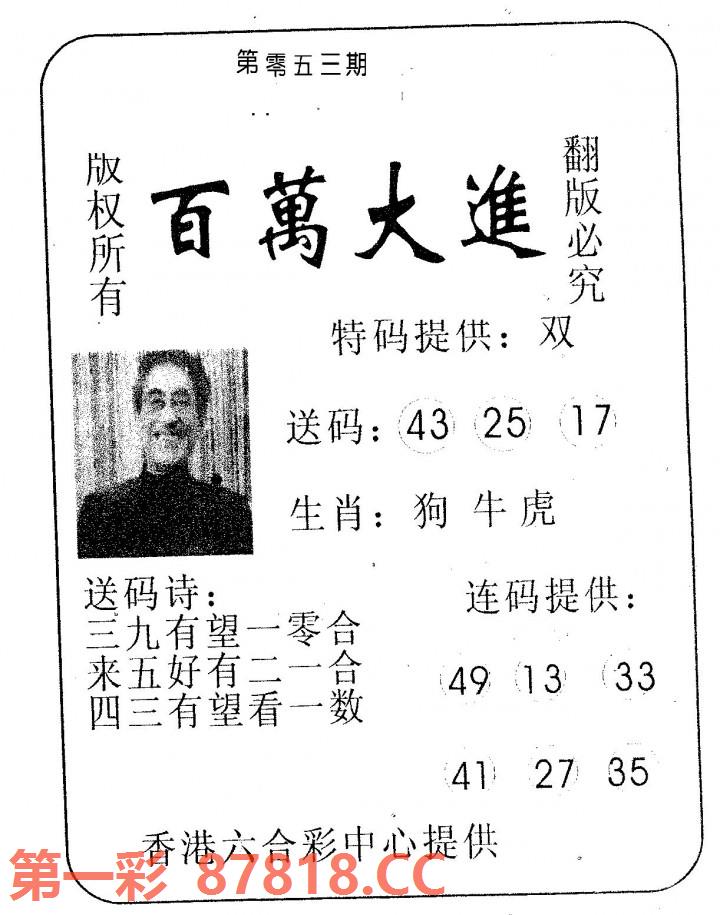 第零五三期
版权所有
百萬大進
翻版必究
特码提供：双
送码：43 25 17
生肖：狗 牛 虎
送码诗：
三九有望一零合
来五好有二一合
四三有望看一数
连码提供：
49 13 33
41 27 35
香港六合彩中心提供
第一彩 87818.CC